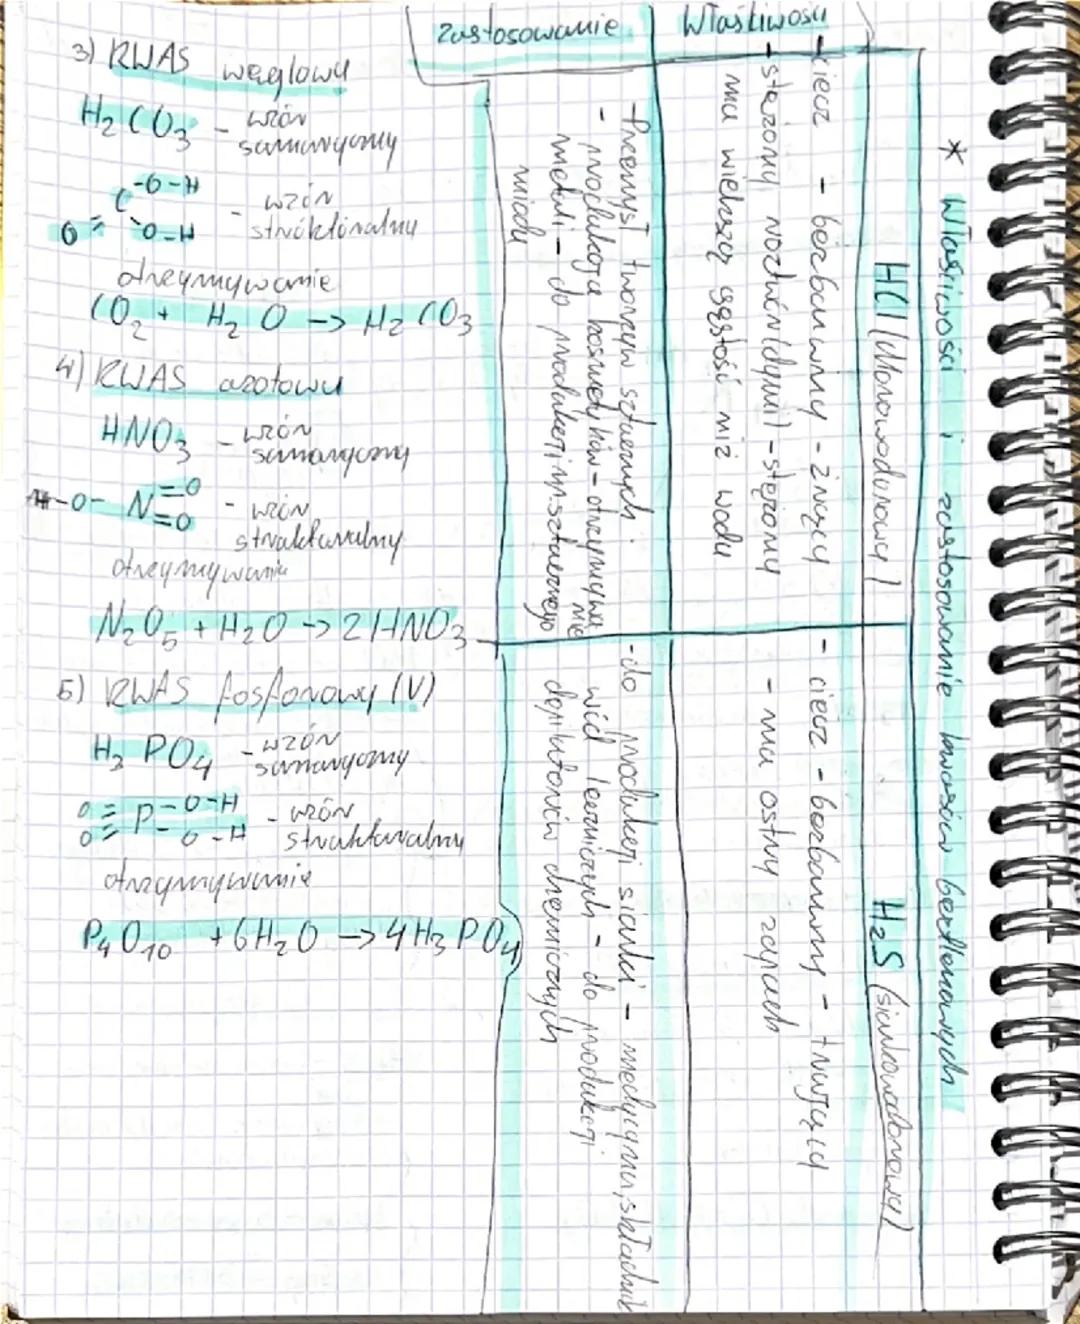 3) KWAS węglowy
H₂CO₃ - wzór
sumaryczny
-O-H
C
O = -O-H
- wzór
strukturalny
otrzymywanie
CO₂ + H₂O -> H₂CO₃
4) KWAS azotowy
HNO₃ - wzór
sumaryczny
H-O-N=O
=O
- wzór
strukturalny
otrzymywanie
N₂O₅ + H₂O -> 2HNO₃
5) KWAS fosforowy (V)
H₃PO₄ - wzór
sumaryczny
O = P-O-H
O = -O-H
- wzór
strukturalny
otrzymywanie
P₄O₁₀ + 6H₂O -> 4H₃PO₄
* Właściwości i zastosowanie kwasów beztlenowych
HCl (chlorowodorowy)
H₂S (siarkowodorowy)
Właściwości
- ciecz - bezbarwny - żrący
- stężony roztwór (dymi) - stężony
ma większą gęstość niż woda
- ciecz - bezbarwny - trujący
- ma ostry zapach
zastosowanie
- Przemysł tworzyw sztucznych
- produkcja kosmetyków - otrzymywanie
metali - do produkcji np. sztucznego
miodu
- do produkcji siarki - medycyna, składnik
wód leczniczych - do produkcji
chemicznych